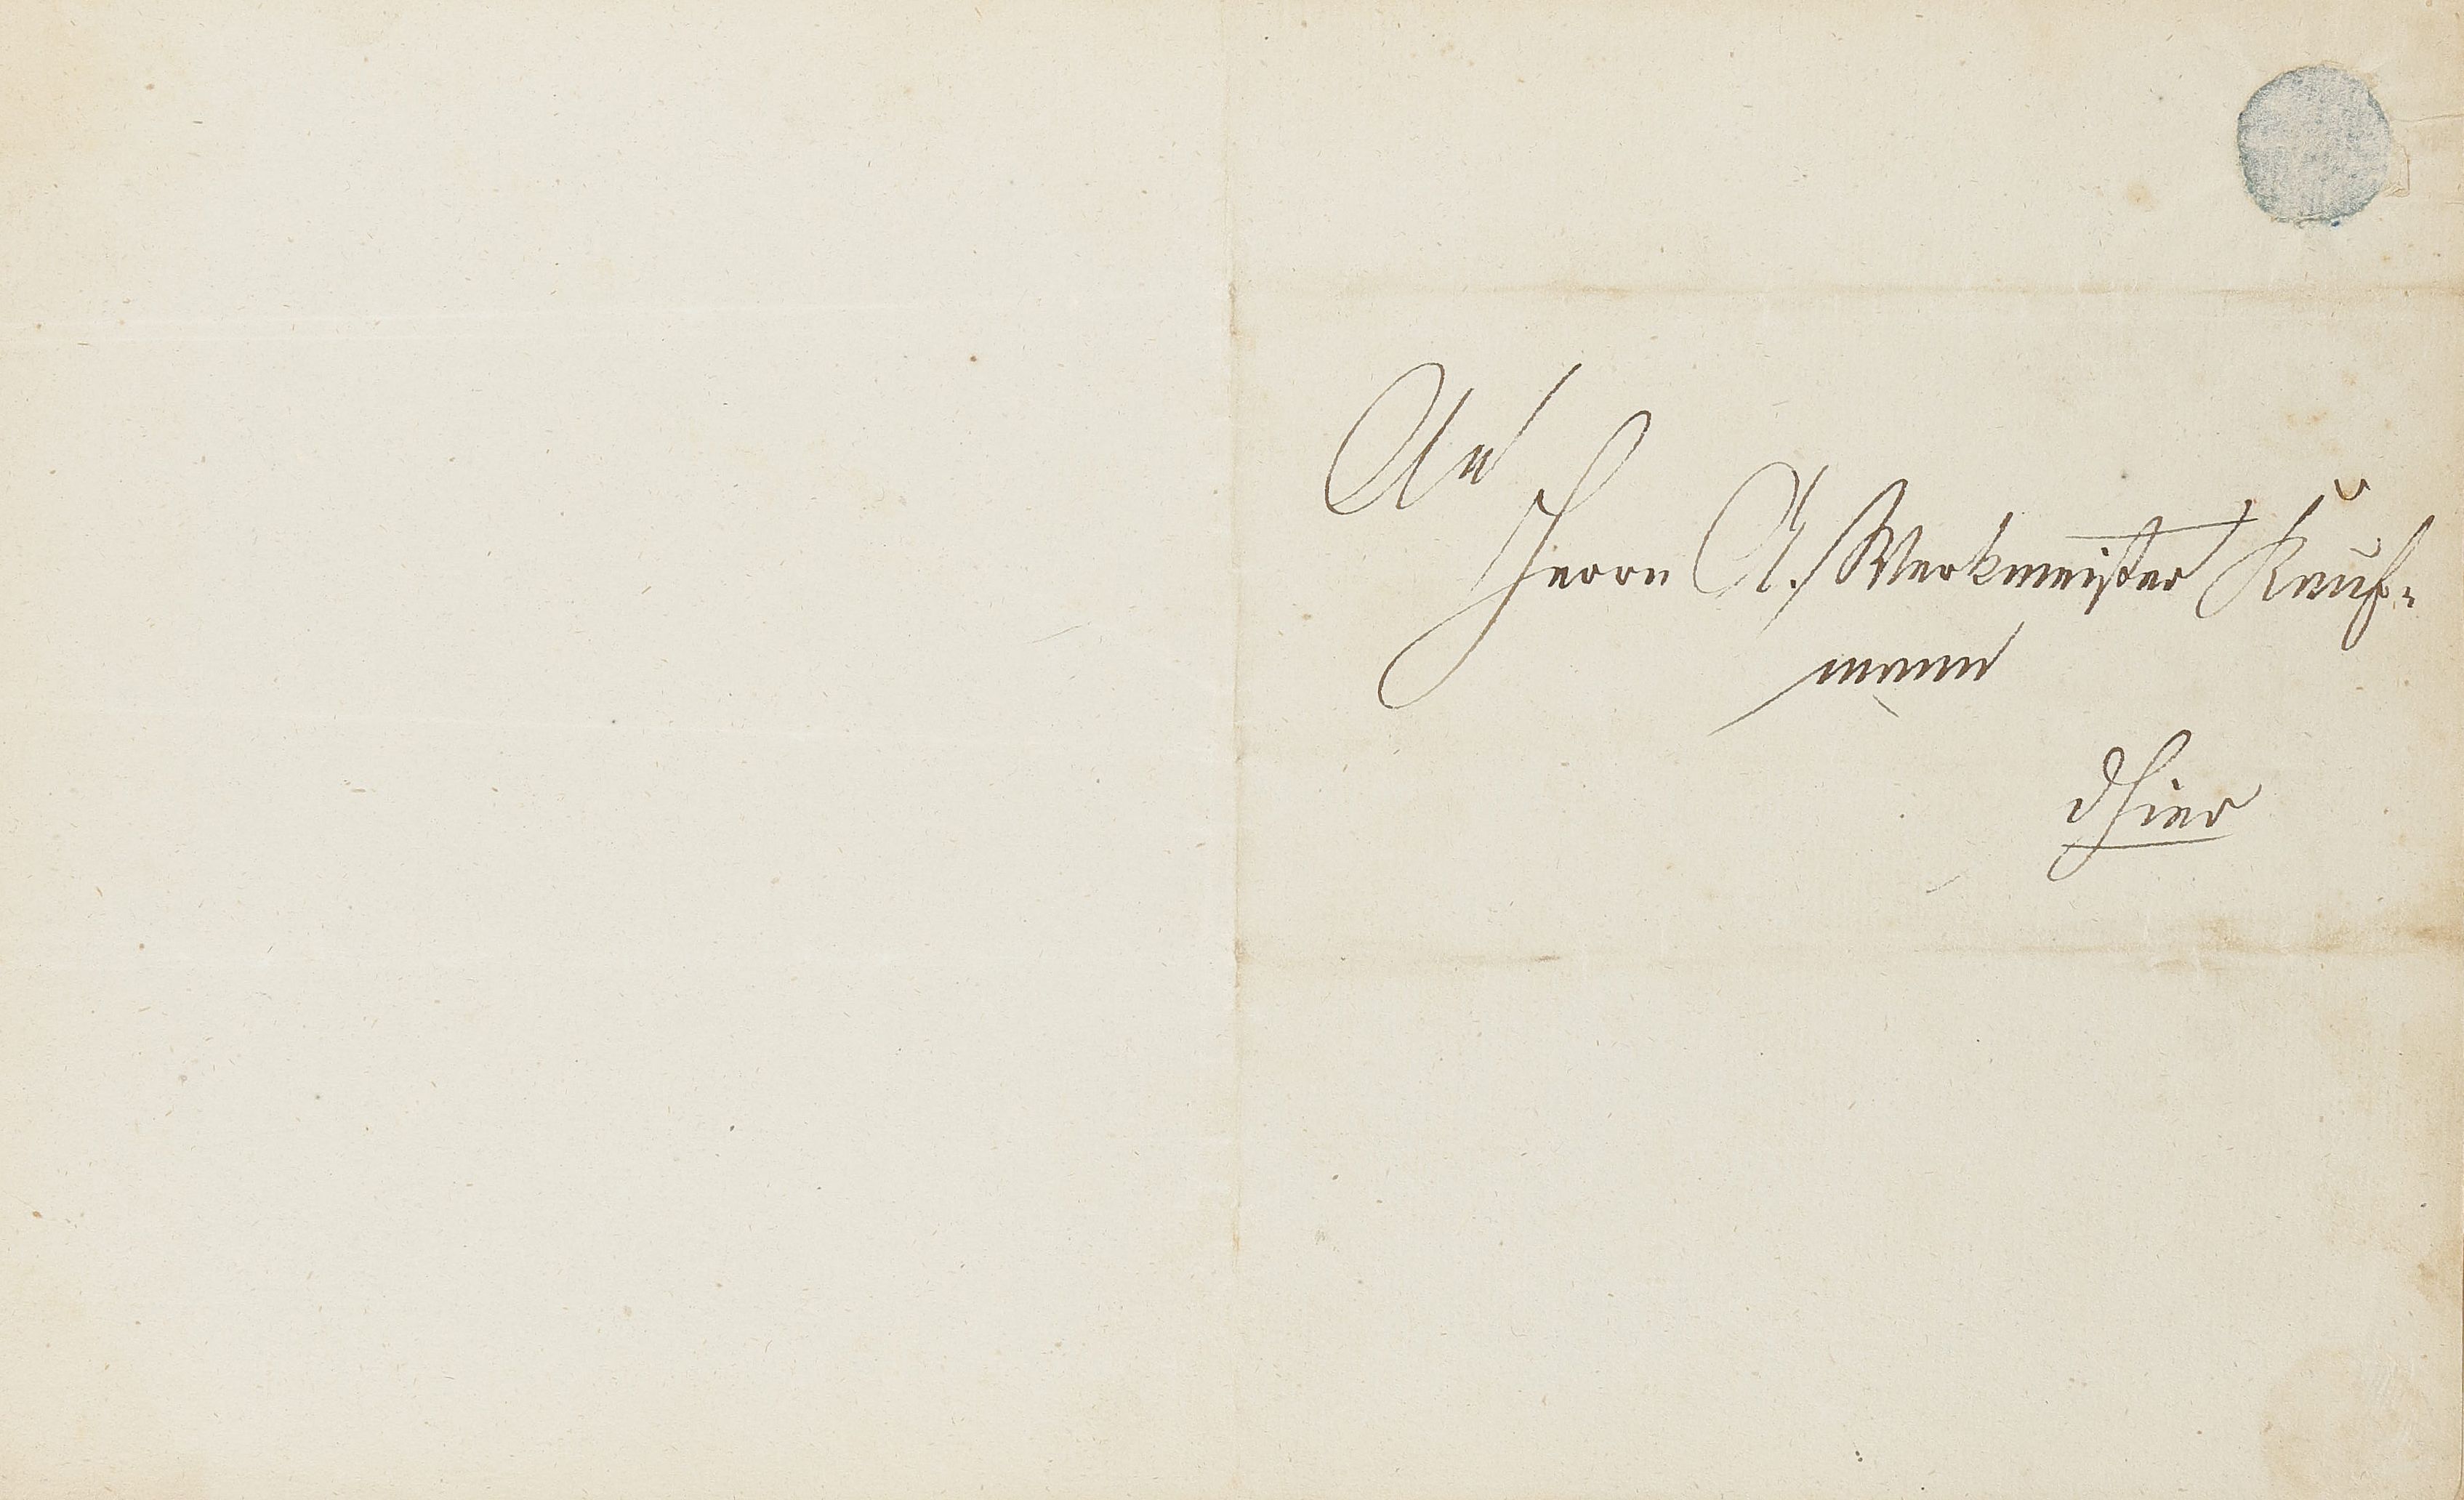 An
Herrn A. Werkmeister Kauf-
mann
dhier